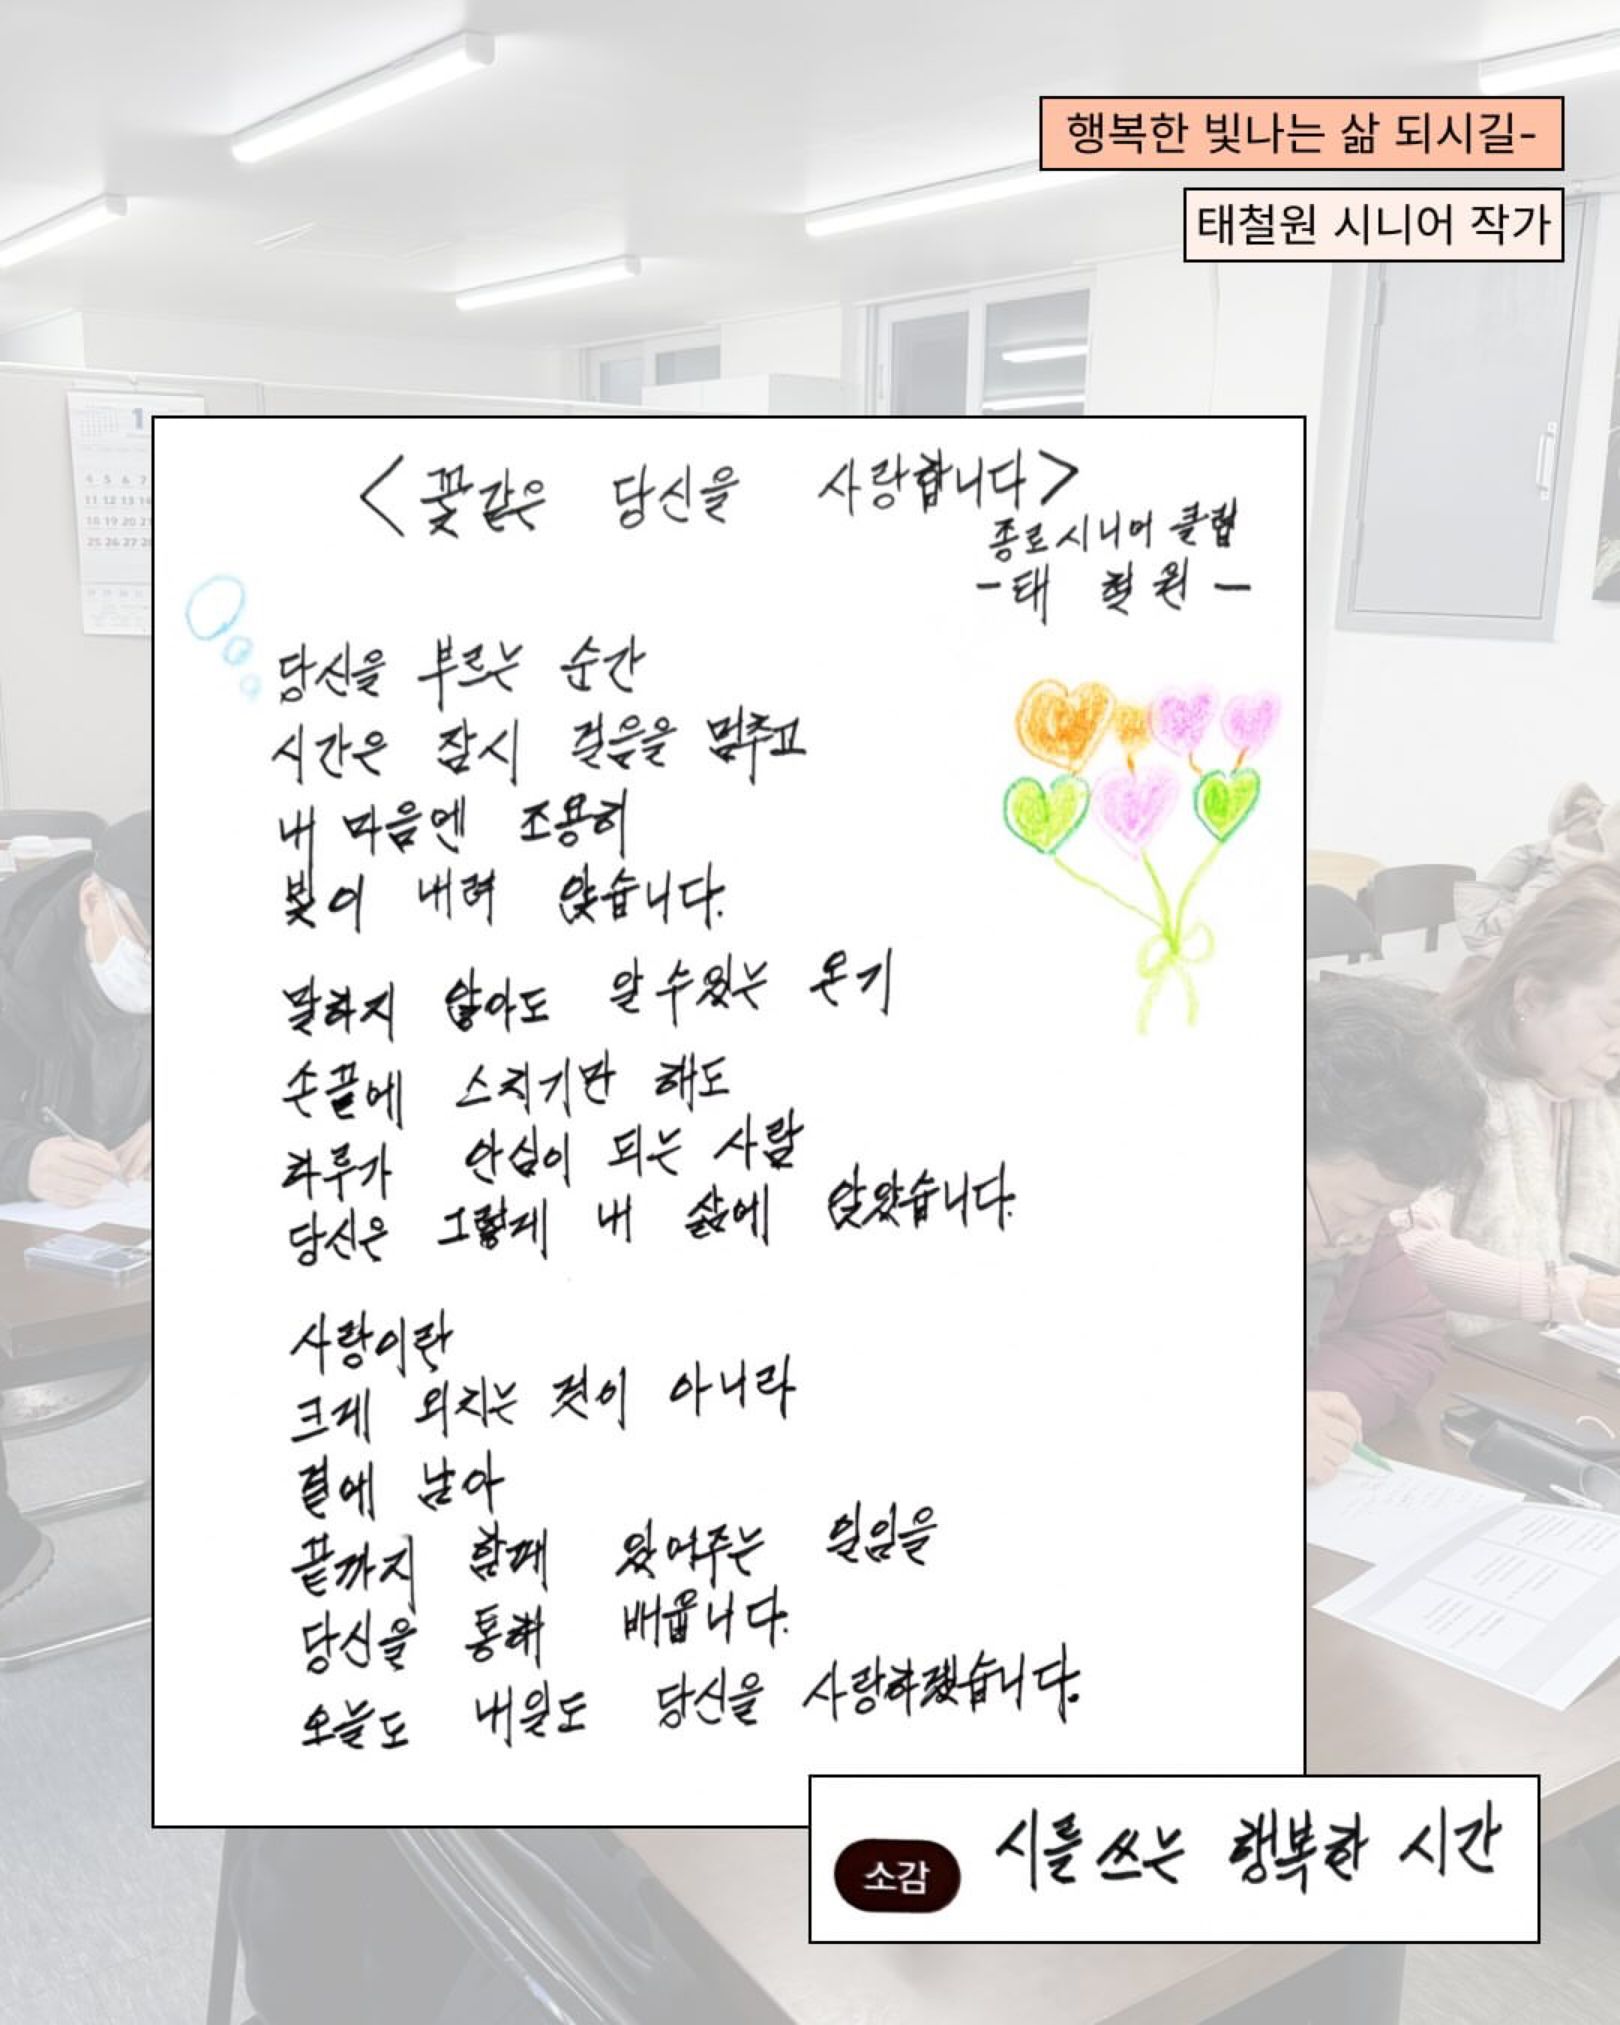 행복한 빛나는 삶 되시길-
태철원 시니어 작가
<꽃같은 당신을 사랑합니다>
종로시니어 클럽
-태 철 원-
당신을 부르는 순간
시간은 잠시 걸음을 멈추고
내 마음엔 조용히
빛이 내려 앉습니다.
말하지 않아도 알 수 있는 온기
손끝에 스치기만 해도
하루가 안심이 되는 사람
당신은 그렇게 내 삶에 앉았습니다.
사랑이란
크게 외치는 것이 아니라
곁에 남아
끝까지 함께 있어주는 일임을
당신을 통해 배웁니다.
오늘도 내일도 당신을 사랑하겠습니다.
소감 시를 쓰는 행복한 시간